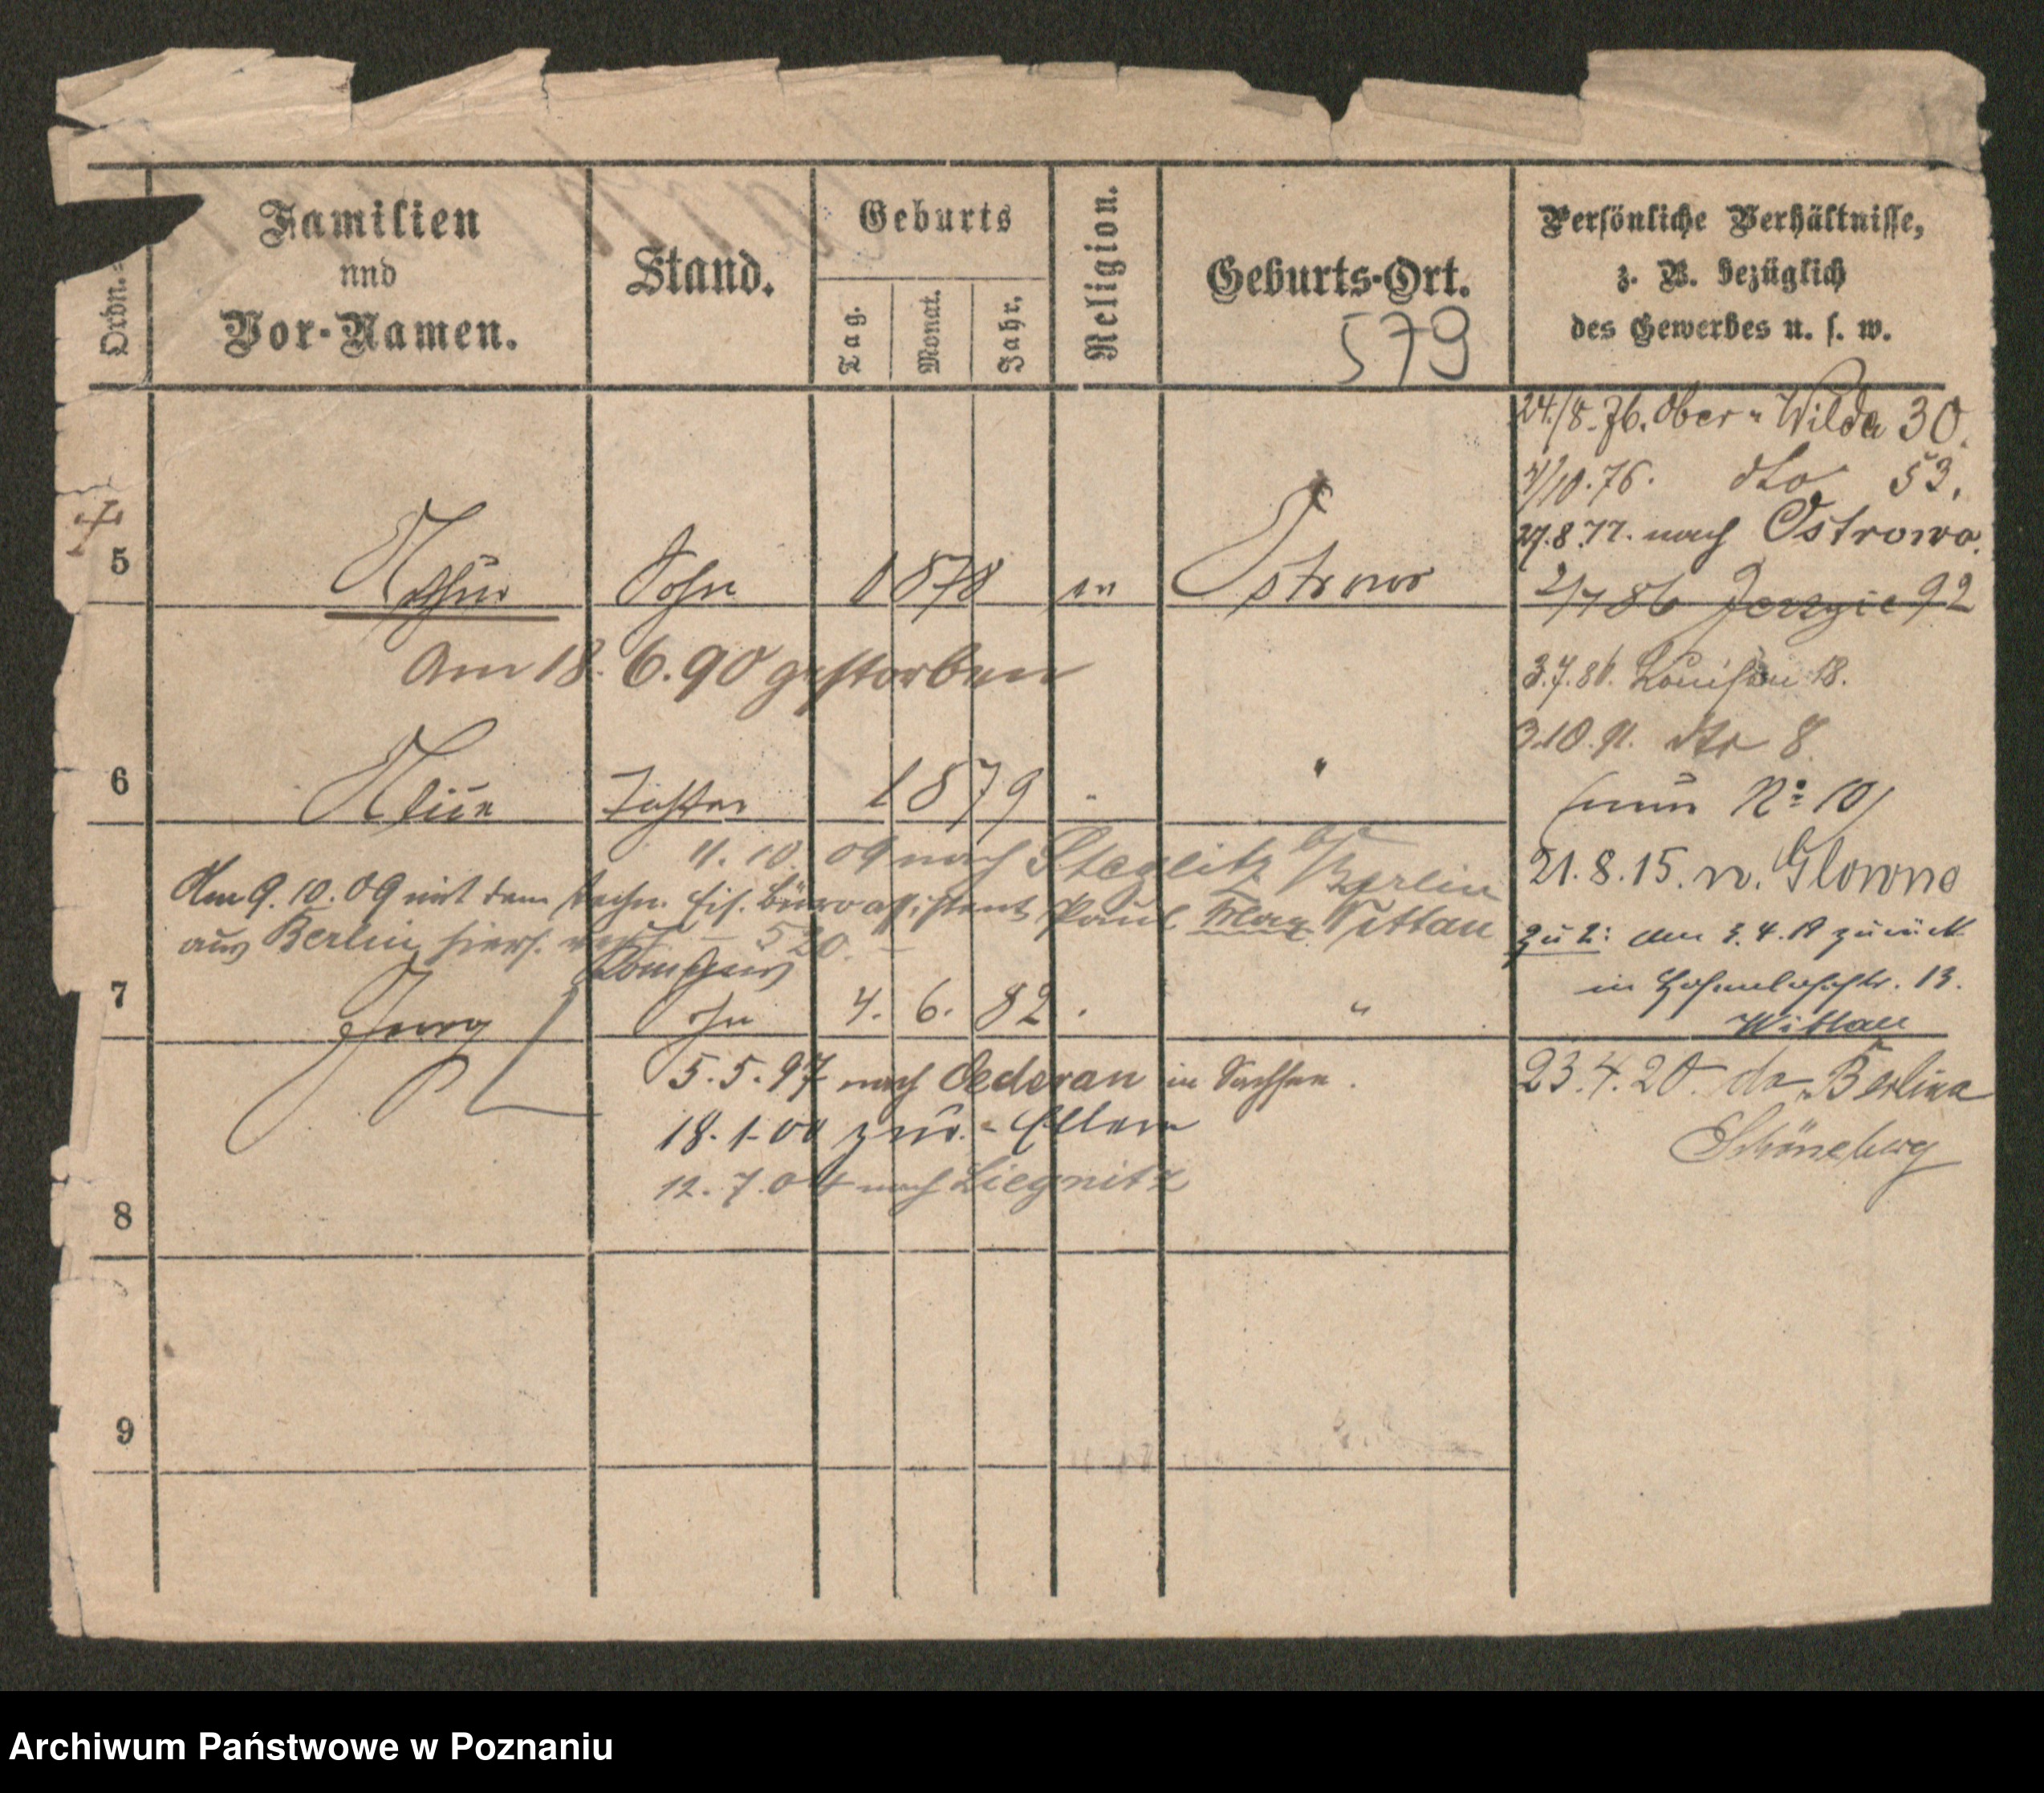 Ordn.=
Familien
und
Vor-Namen.
Stand.
Geburts
Tag.
Monat.
Jahr.
Religion.
Geburts-Ort.
579
Persönliche Verhältnisse,
z. B. bezüglich
des Gewerbes u. s. w.
24./8.76. Ober-Wilda 30.
4/10.76. dto 53.
27.8.77. nach Ostrowo.
5
Arthur Sohn 1878 ev Ostrowo
2/7 86 Jerzyce 92
Am 18. 6. 90 gestorben
3.7.86. Louisen 18.
3.10.91. dto 8.
(nun No 10)
6
Alice Tochter 1879 " "
11. 10. 09 nach Steglitz b/Berlin
21.8.15. n. Glowno
Am 9. 10. 09 mit dem techn. Eis. Büroassistent Paul Max Wittau
aus Berlin hiers. 520.
zu 2: am 4.19 zurück
in Hohenlohestr. 13.
Wittau
7
Georg Sohn 4. 6. 82 . "
5. 5. 97 nach Oederan in Sachsen.
18. 1. 00 zur. Eltern
12. 7. 04 nach Liegnitz
23. 4. 20. Berlin
Schöneberg
8
9
Archiwum Państwowe w Poznaniu